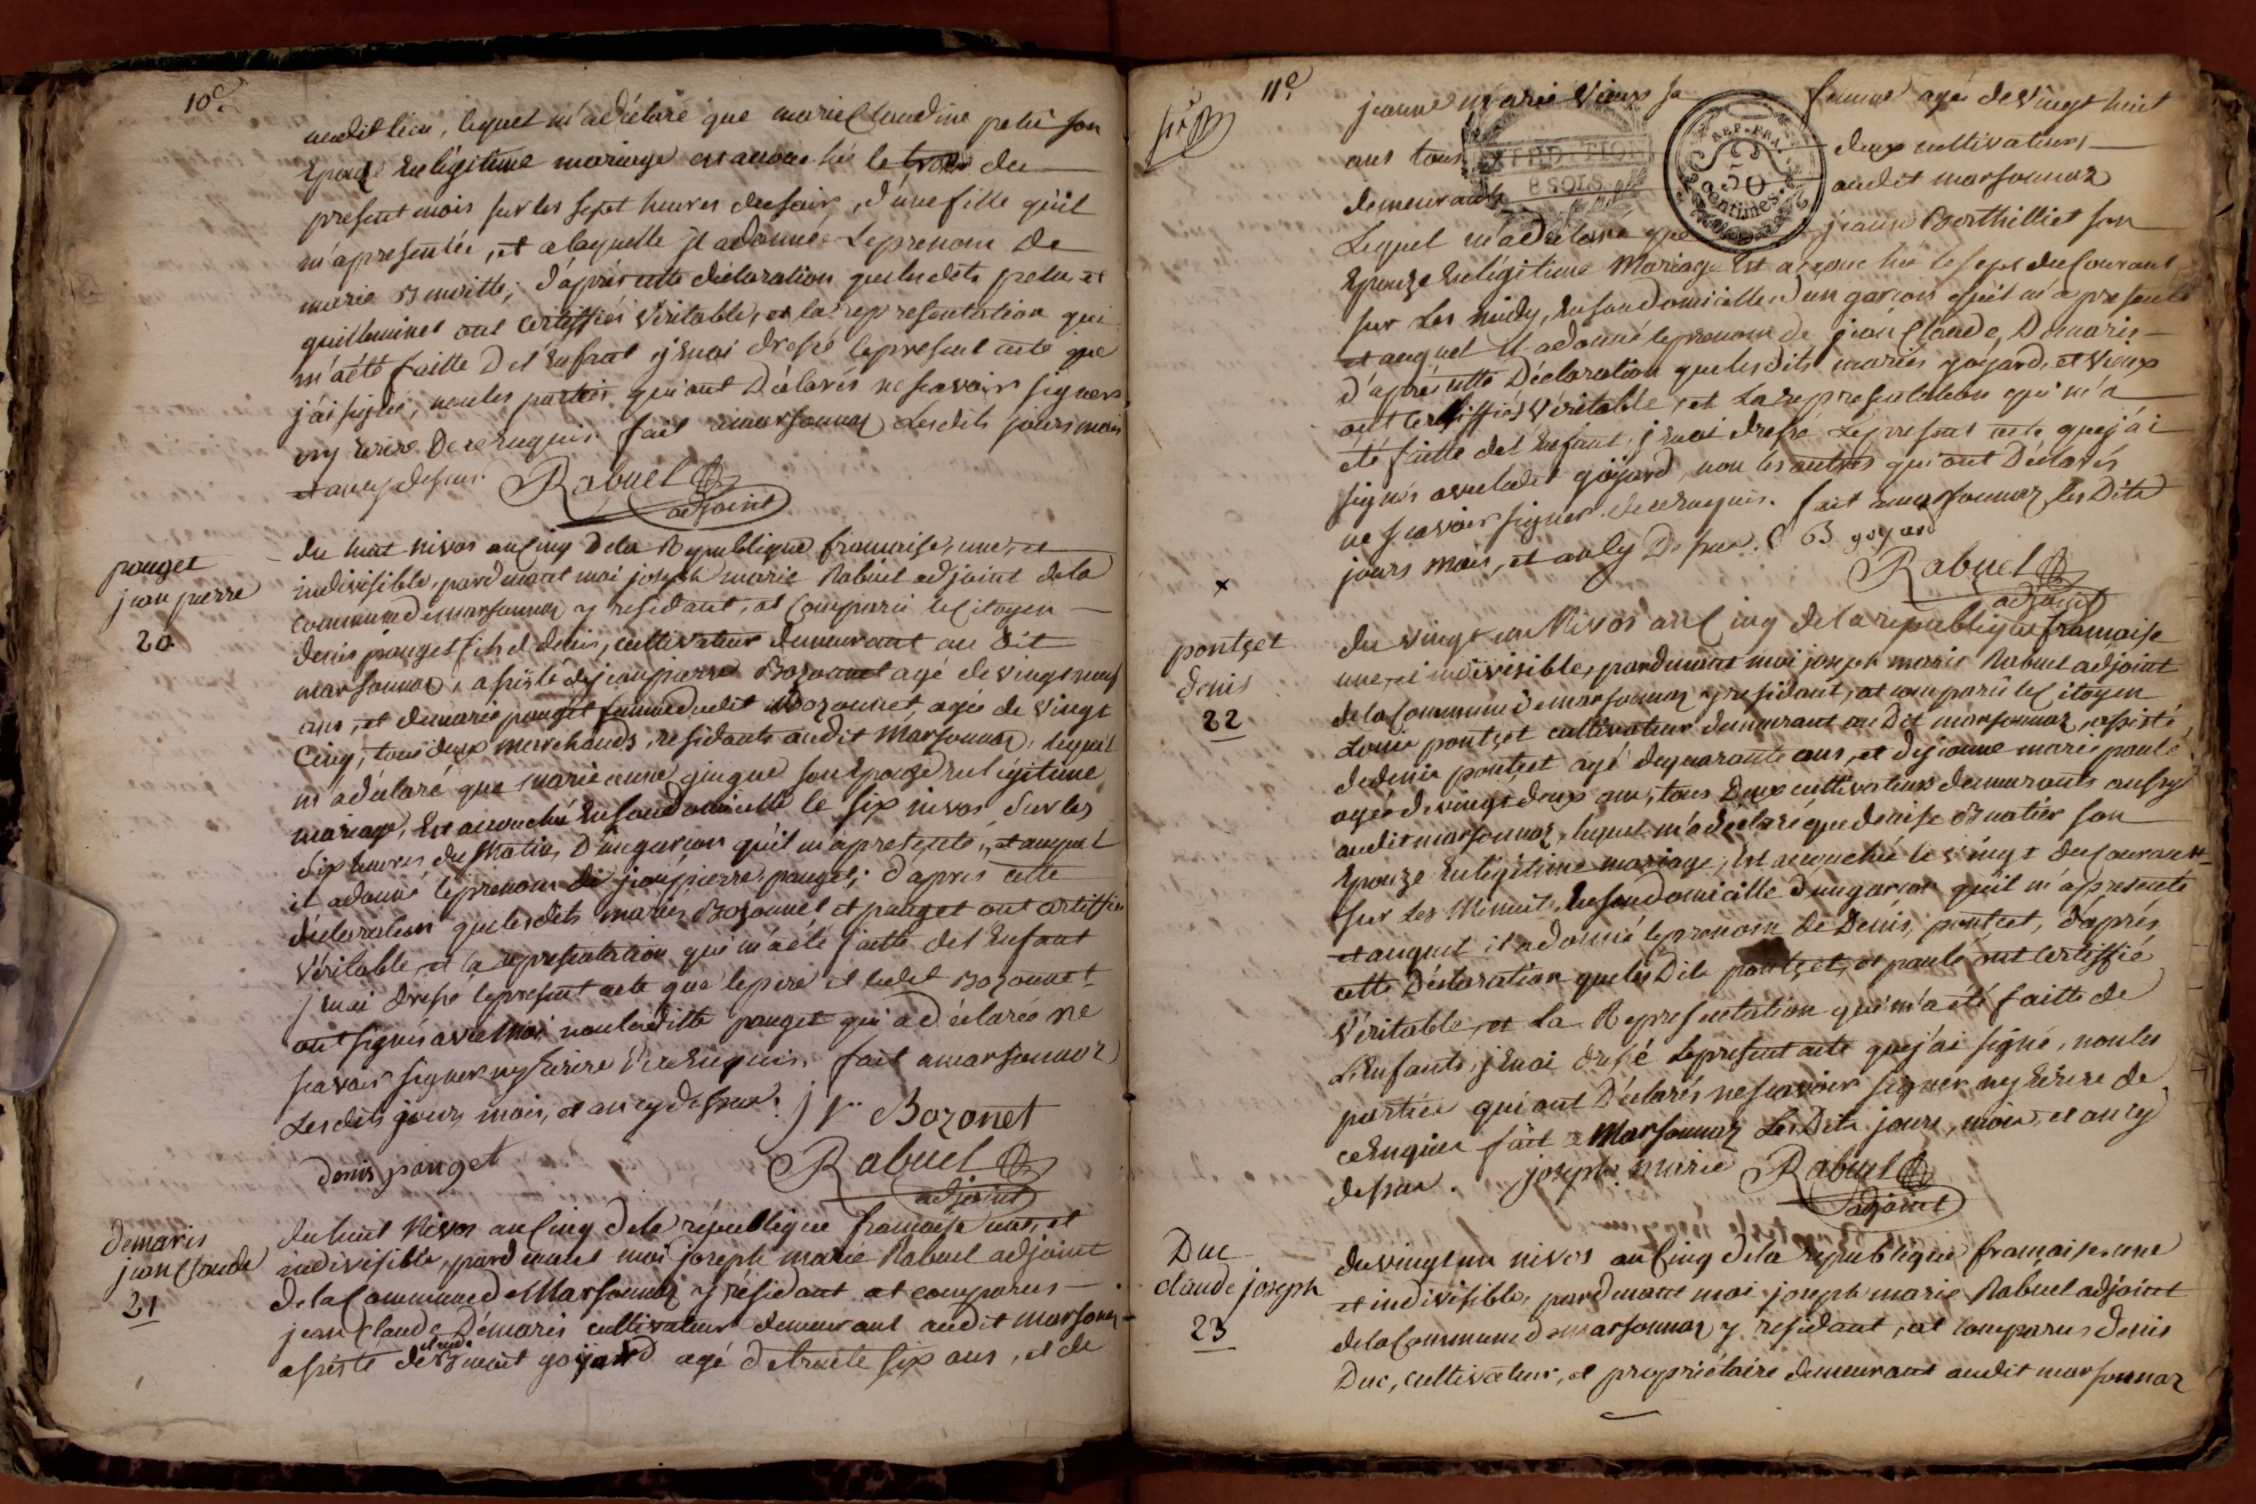 10e.
audit lieu, lequel m'a déclaré que marie Claudine petit son
Epouze En légitime mariage est accouchée le du
present mois sur les sept heures du soir, d'une fille qu'il
m'a presentée, et a laquelle il a donné le prenom de
marie ; d'après cette déclaration que lesdits et
guilleminet ont Certiffiés Véritable, et la representation qui
m'a été faitte D et Enfant j'Enai dressé le present acte que
j'ai signé, non les parties qui ont Déclarés ne scavoir signer
ny Ecrire De ce Enquis. fait a marsonnaz Lesdits jours mois
et an cy dessus. Rabuel
adjoint
pouget
jean pierre
20
du huit nivos an Cinq De la Republique francaise, une, et
indivisible, pardevant moi joseph marie Rabuel adjoint de la
commune de marsonnaz y residant, at Comparu le Citoyen
denis pouget fils de denis, cultivateur demeurant au dit
marsonnaz, assisté de jean pierre Bozonnet agé de vingt neuf
ans, et de marie pouget femme dudit Bozonnet, agée de vingt
Cinq, tous deux marchands, residants audit Marsonnaz, lequel
m'a déclaré que marie anne son Epouze En légitime
mariage, Est accouchée En son domicille le six nivos Sur les
dix heures du Matin, D'un garcon qu'il m'a presenté, et auquel
il a donné le prenom de jean pierre pouget; d'apres cette
déclaration que lesdits mariés Bozonnet et pouget ont certiffié
Véritable, et la representation qui m'a été faitte del Enfant
j'Enai dressé le present acte que le pere et ledit Bozonnet
ont signés avec Moi non laditte pouget qui a déclarée ne
scavoir signer ny Ecrire De ce Enquis. fait a marsonnaz
Les dits jours mois, et an cy dessus. j p Bozonet
denis pouget Rabuel
adjoint
Demaris
jean Claude
21
du huit Nivos an Cinq De la république francaise une, et
indivisible, pardevant moi joseph marie Rabuel adjoint
de la Commune de Marsonnaz y résidant at comparus
jean Claude Démaris cultivateur demeurant audit marsonnaz
claude
assisté de Benoit goyard agé de trente six ans, et de
11e.
jeanne marie Vieux sa femme agée de Vingt huit
ans tous deux cultivateurs
demeurants audit marsonnaz
Lequel m'a déclaré que jeanne Berthilliet son
Epouze En légitime Mariage Est accouchée le sept du Courant
sur Les midy, En son domicille d'un garcon qu'il m'a presenté
et auquel il a donné le prenom de jean Claude Demaris
d'après cette Déclaration que lesdits mariés goyard, et Vieux
ont Certiffiés Véritable, et La representation qui m'a
été faitte del Enfant, j'Enai dressé Le present acte que j'ai
signés avec ledit goyard, non les autres qui ont Déclarés
ne scavoir signer de ce Enquis. fait a marsonnaz les Dits
jours mois, et an cy Dessus. C B goyard
Rabuel
adjoint
EXPEDITION
8 SOLS
REP. FRA.
50
centimes.
x
pontçet
denis
22
du vingt un Nivos an Cinq de la république francaise
une, et indivisible, pardevant moi joseph marie Rabuel adjoint
de la Commune de marsonnaz y residant, at comparu le Citoyen
Louis pontçet cultivateur demeurant au Dit marsonnaz, assisté
de denis pontçet agé de quarante ans, et de jeanne marie
agée de vingt deux ans, tous Deux cultivateurs demeurants aussy
audit marsonnaz, lequel m'a declaré que denise son
Epouze En légitime mariage, Est accouchée le vingt du Courant
sur Les Minuit, En son domicille d'un garcon qu'il m'a presenté
et auquel il a donné le prenom de Denis pontcet, d'après
cette Déclaration que les Dits pontçet, et ont Certiffié
Véritable, et La Representation qui m'a été faitte de
L'Enfant, j'Enai dressé Le present acte que j'ai signé, non les
parties qui ont Déclarés ne scavoir signer ny Ecrire de
ce Enquis fait a Marsonnaz Les Dits jours, mois, et an cy
dessus. joseph marie Rabuel
adjoint
Duc
claude joseph
23
du vingt un nivos an Cinq de la republique francaise, une
et indivisible, pardevant moi joseph marie Rabuel adjoint
de la Commune de marsonnaz y residant, at comparus denis
Duc, cultivateur, et propriétaire demeurant audit marsonnaz